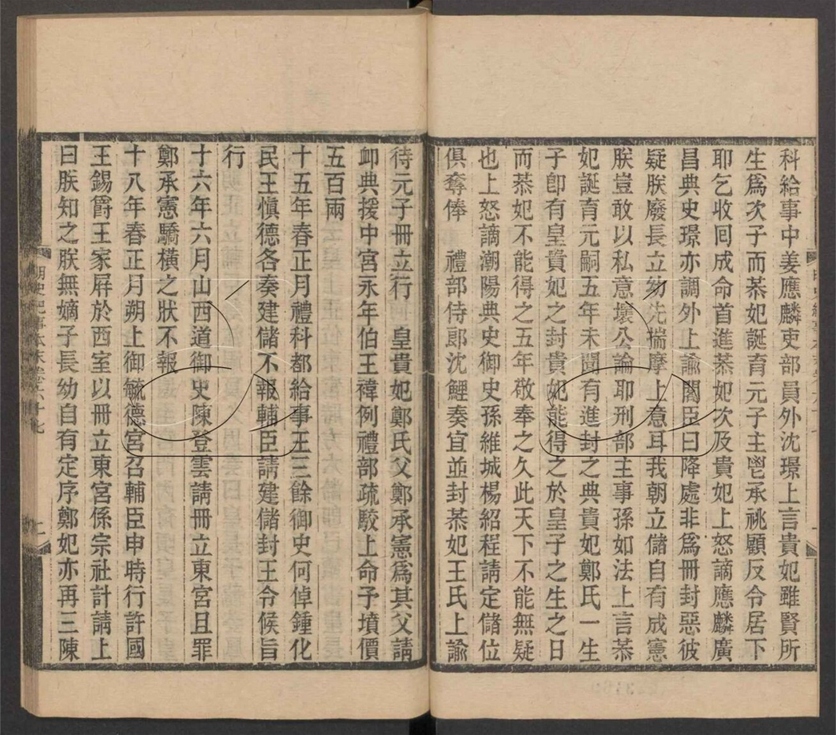 科給事中姜應麟吏部員外沈璟上言貴妃雖賢所
生爲次子而恭妃誕育元子主鬯承祧顧反令居下
耶乞收回成命首進恭妃次及貴妃上怒謫應麟廣
昌典史璟亦調外上諭閣臣曰降處非爲冊封惡彼
疑朕廢長立幼先揣摩上意耳我朝立儲自有成憲
朕豈敢以私意壞公論耶刑部主事孫如法上言恭
妃誕育元嗣五年未聞有進封之典貴妃鄭氏一生
子卽有皇貴妃之封貴妃能得之於皇子之生之日
而恭妃不能得之五年敬奉之久此天下不能無疑
也上怒謫潮陽典史御史孫維城楊紹程請定儲位
俱奪俸　禮部侍郎沈鯉奏宜並封恭妃王氏上諭
待元子冊立行　皇貴妃鄭氏父鄭承憲爲其父請
卹典援中宮永年伯王褘例禮部疏駁上命予墳價
五百兩
十五年春正月禮科都給事王三餘御史何倬鍾化
民王慎德各奏建儲不報輔臣請建儲封王令候旨
行
十六年六月山西道御史陳登雲請冊立東宮且罪
鄭承憲驕橫之狀不報
十八年春正月朔上御毓德宮召輔臣申時行許國
王錫爵王家屛於西室以冊立東宮係宗社計請上
曰朕知之朕無嫡子長幼自有定序鄭妃亦再三陳
明史紀事本末卷六十七
二